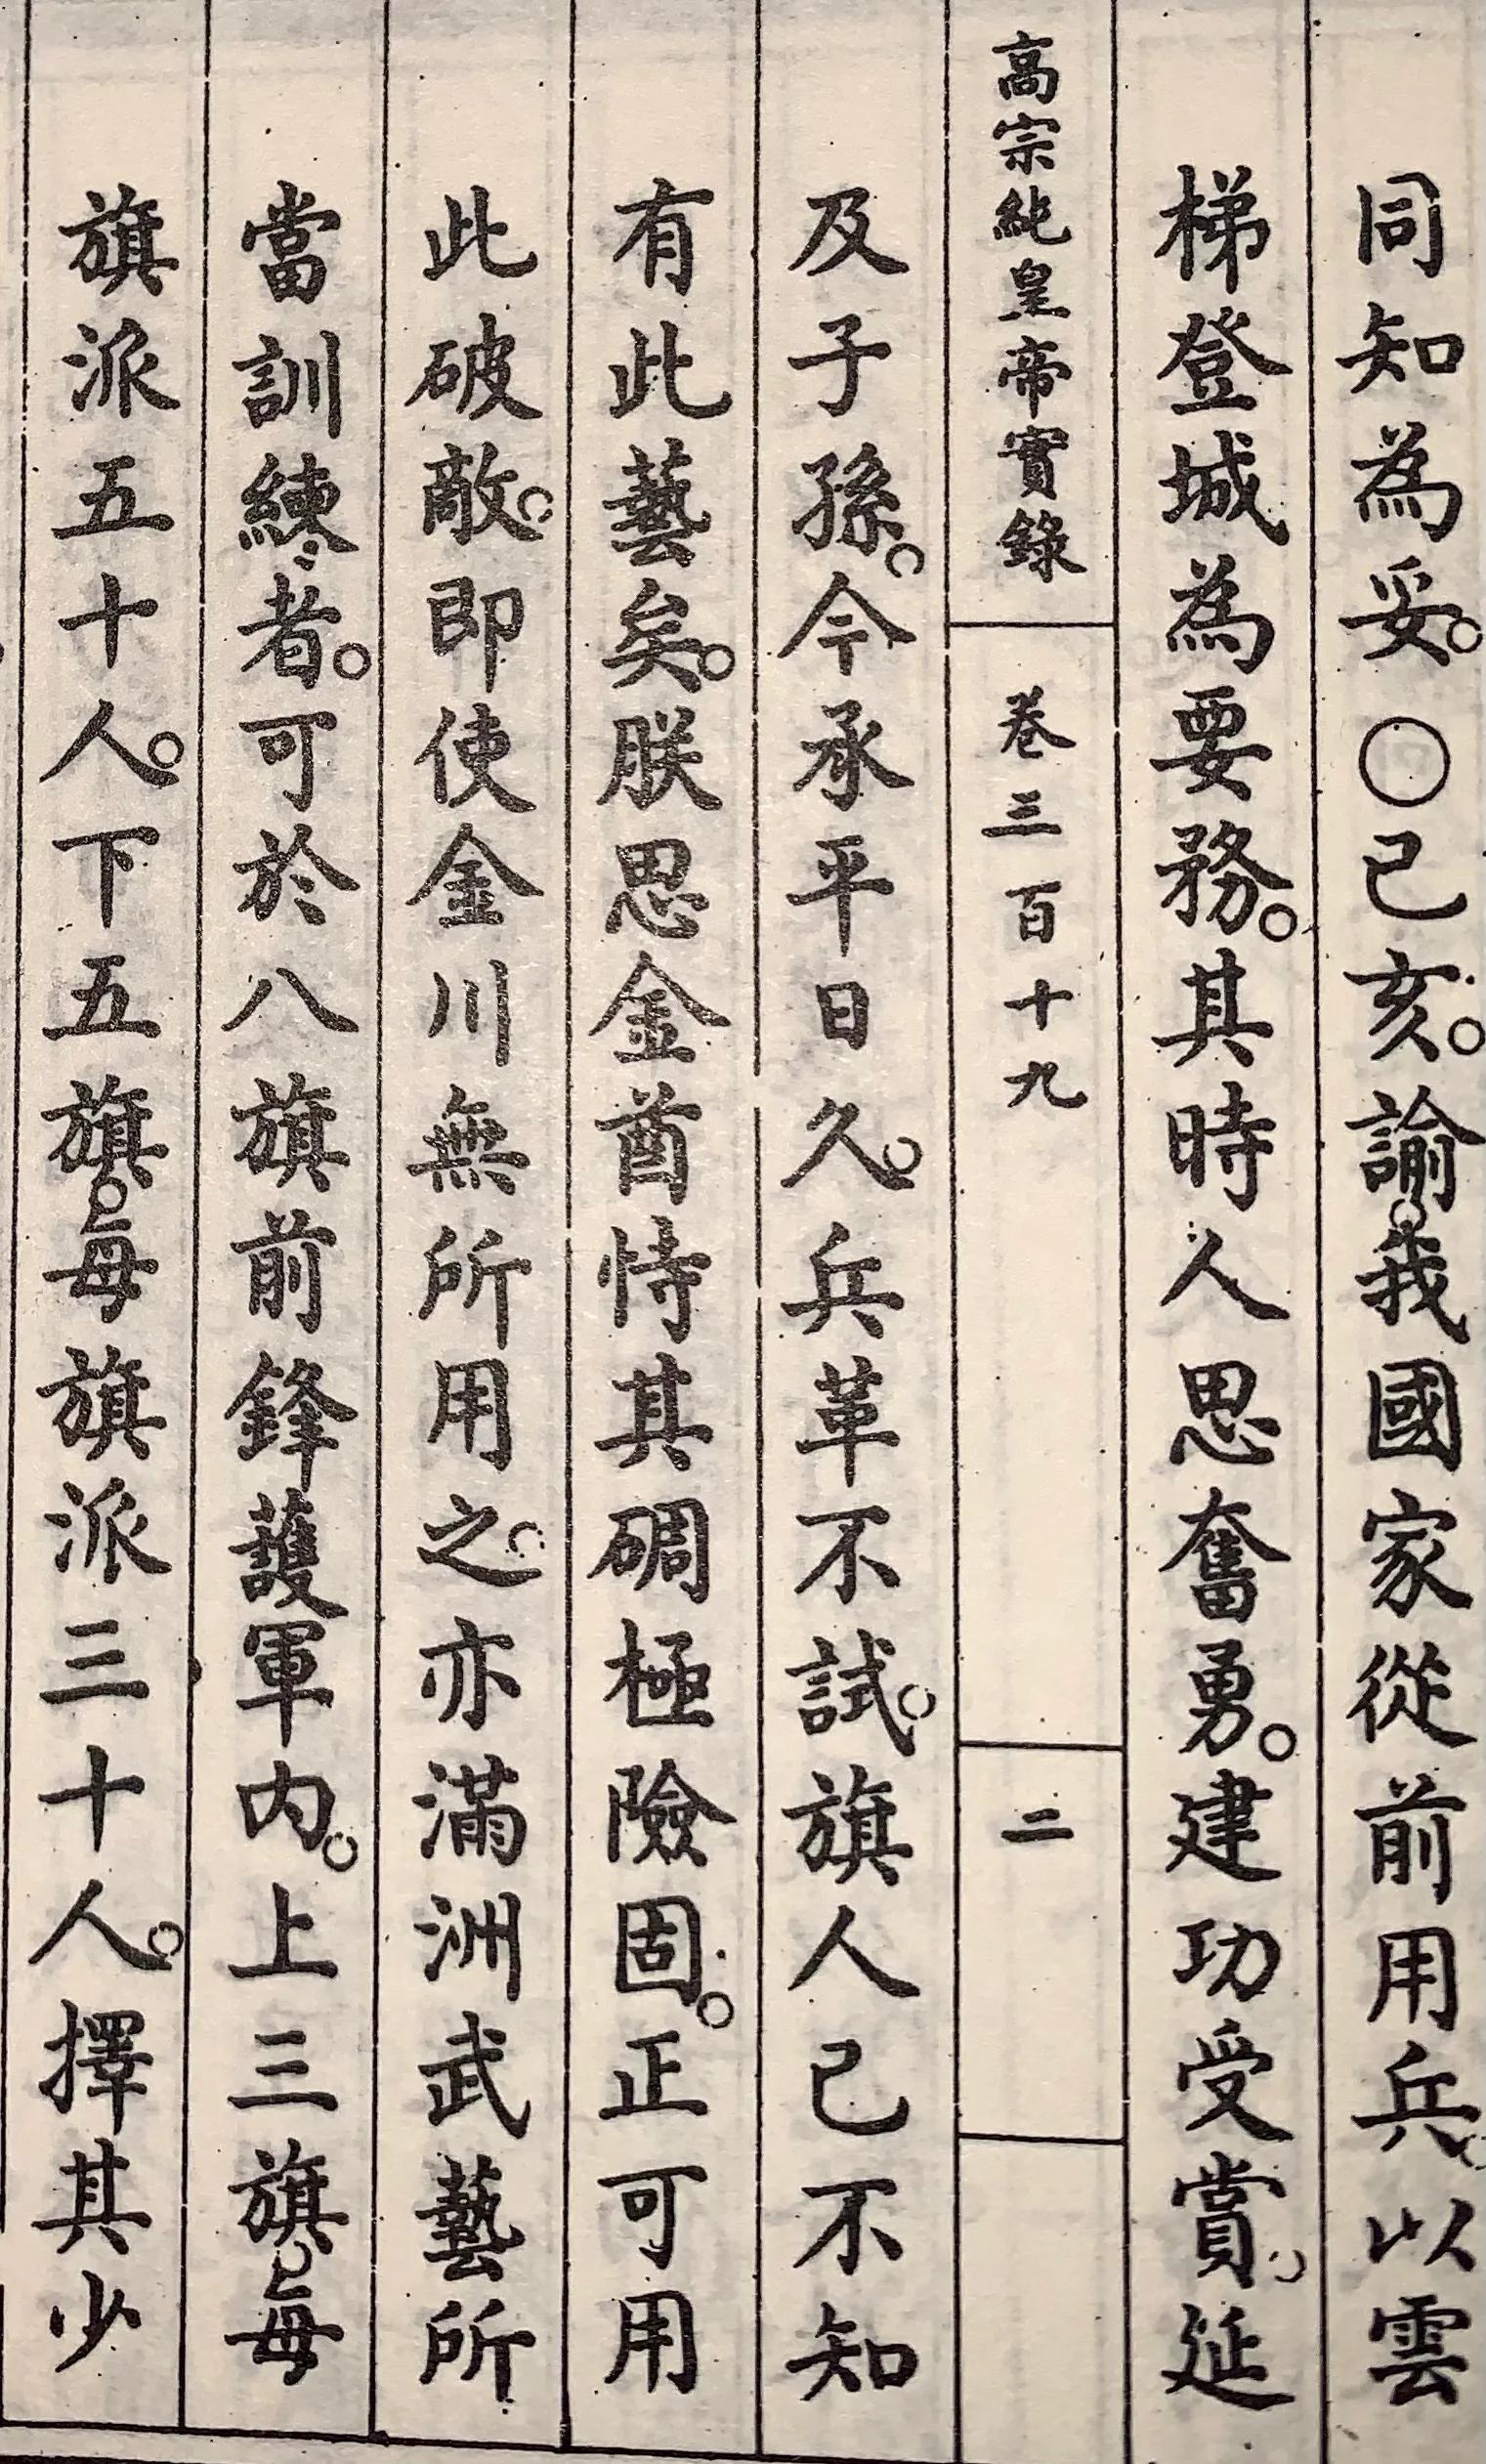 同知為妥。○己亥。諭。我國家從前用兵。以雲
梯登城為要務。其時人思奮勇。建功受賞。延
高宗純皇帝實錄 卷三百十九 二
及子孫。今承平日久。兵革不試。旗人已不知
有此藝矣。朕思金酋恃其碉極險固。正可用
此破敵。即使金川無所用之。亦滿洲武藝所
當訓練者。可於八旗前鋒護軍內。上三旗。每
旗派五十人。下五旗。每旗派三十人。擇其少